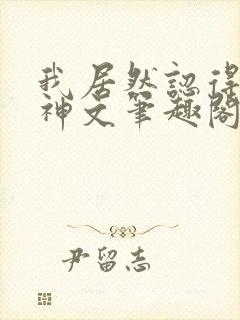 我居然認得
神文筆趣閣
尹留志